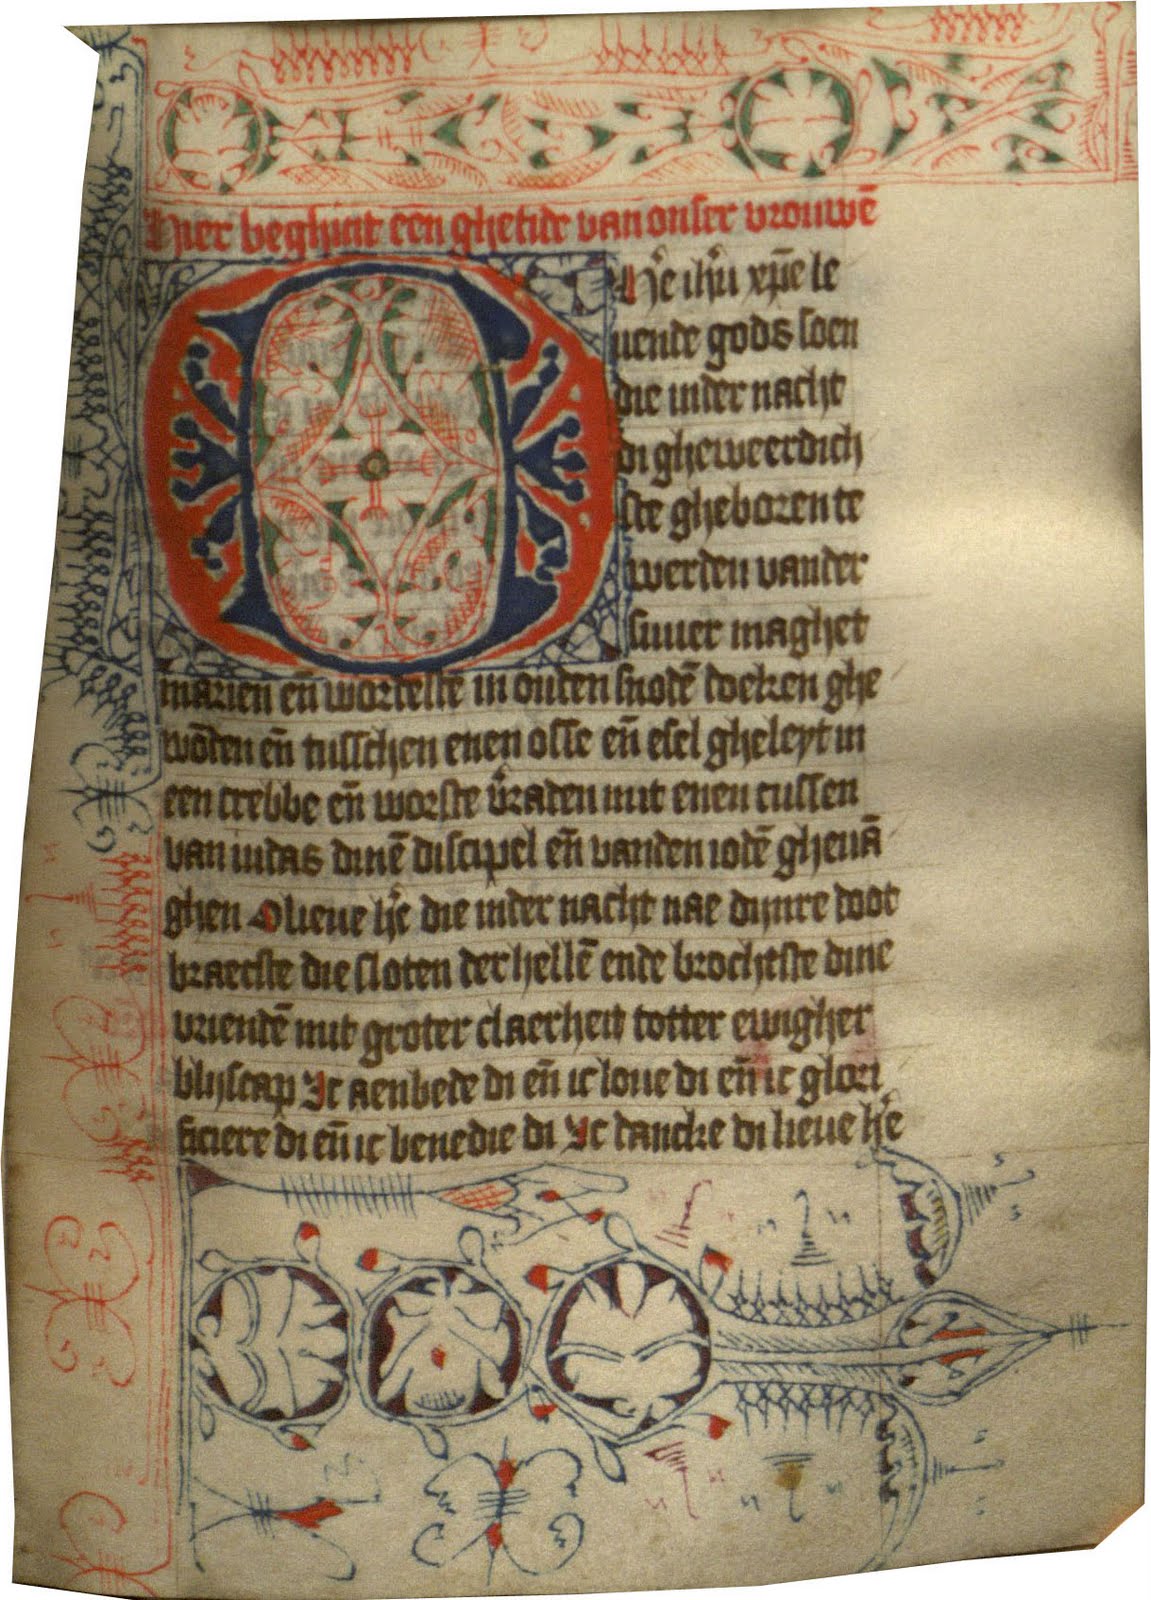 Hier beghint een ghetide van onser vrouwē
O He ihu xpe le
uende gods soen
die inder nacht
di gheweerdich
ste gheboren te
werden vander
suuer maghet
marien eñ worteste in ouden snodē doeken ghe
wōden eñ tusschen enen osse eñ esel gheleyt in
een crebbe eñ worste v̄raden mit enen cussen
van iudas dinē discipel eñ vanden iodē gheuā
ghen O lieue he die inder nacht nae dijnre doot
braecste die sloten der hellē ende brochtste dine
vriendē mit groter claerheit totter ewigher
blijscap Ic aenbede di eñ ic loue di eñ ic glori
ficiere di eñ ic benedie di Ic dancke di lieue he